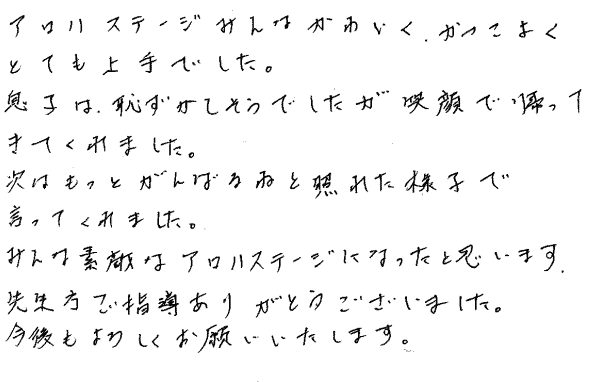 アロハステージみんなかわいく、かっこよく
とても上手でした。
息子は、恥ずかしそうでしたが笑顔で帰って
きてくれました。
次はもっとがんばるねと照れた様子で
言ってくれました。
みんな素敵なアロハステージになったと思います。
先生方ご指導ありがとうございました。
今後もよろしくお願いいたします。